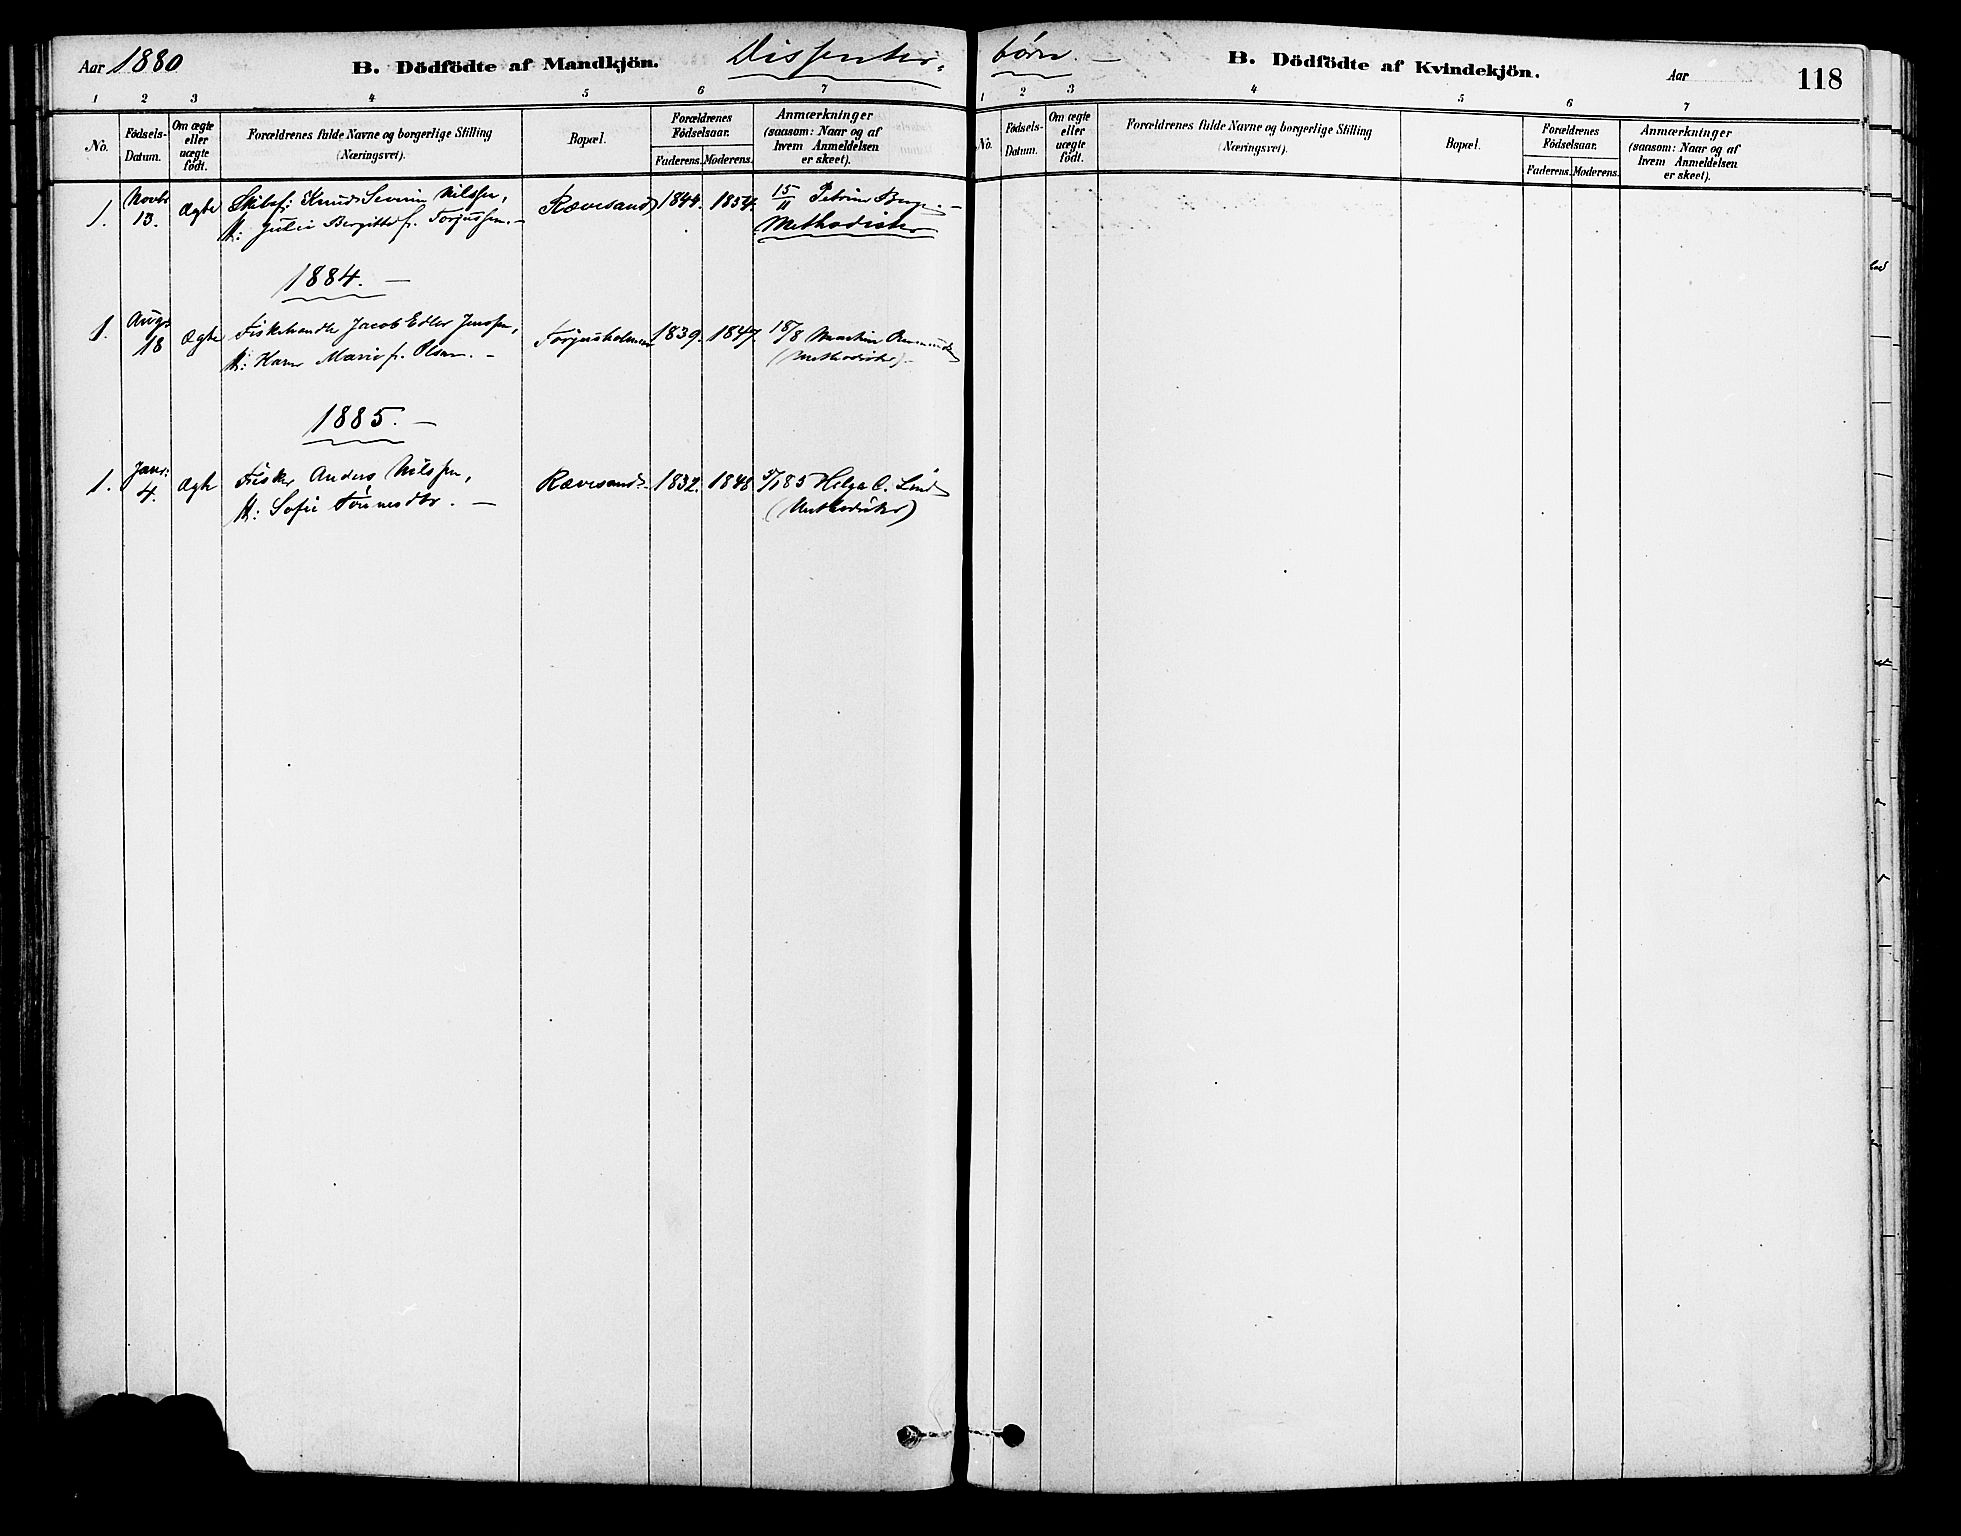 Aar 1880
B. Dödfödte af Mandkjön.
Dissenter-
börn. —
B. Dödfödte af Kvindekjön.
Aar
118
1 2 3 4 5 6 7
1 2 3 4 5 6 7
No.
Födsels-
Datum.
Om ægte
eller
uægte
födt.
Forældrenes fulde Navne og borgerlige Stilling
(Næringsvei).
Bopæl.
Forældrenes
Födselsaar.
Faderens. Moderens.
Anmærkninger
(saasom: Naar og af
hvem Anmeldelsen
er skeet).
No.
Födsels-
Datum.
Om ægte
eller
uægte
födt.
Forældrenes fulde Navne og borgerlige Stilling
(Næringsvei).
Bopæl.
Forældrenes
Födselsaar.
Faderens. Moderens.
Anmærkninger
(saasom: Naar og af
hvem Anmeldelsen
er skeet).
1. Novbr 13. Ægte Knud Severin Nilssen, Rævesand 1844. 1854. 15/11 Petrine
H: Julie Bergitte f. Torjussen. — Methodister
1884. —
1. Augs 18 Ægte Fiskehandler Jacob Edler Jenssen, Torjusholmen 1839. 1847. 18/8 Martin
H: Karen Marie f. Olsen. — (Methodister). —
1885. —
1. Janr: 4. Ægte Fisker Anders Nilssen, Rævesand. 1832. 1848 85 Helge C. Lind
H: Sofie Tönnesdtr. — (Methodister)